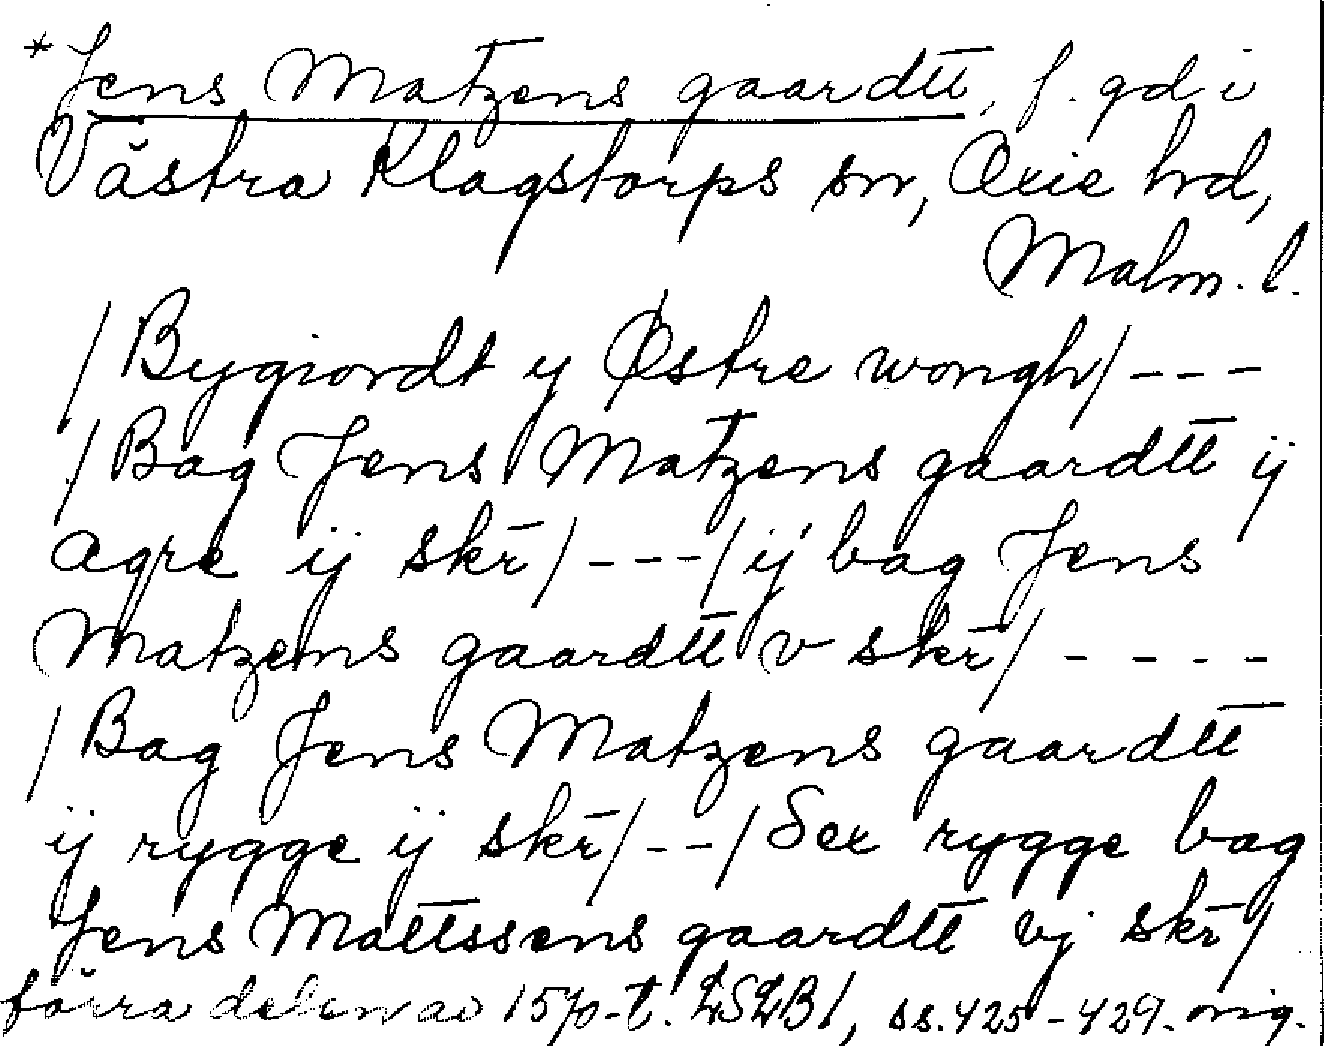 *Jens Matzens gaardtt, f. gd i
Västra Klagstorps sn, Oxie hd,
Malm. l.
/Bygiordt y Østre wongh/---
/Bag Jens Matzens gaardtt ij
agre ij skr̄/---/ij bag Jens
Matzens gaardtt v skr̄/----
/Bag Jens Matzens gaardtt
ij rygge ij skr̄/--/Sex rygge bag
Jens Mattssens gaardtt vj skr̄/
förra delen av 1570-t. LSLB1, ss. 425-429. orig.